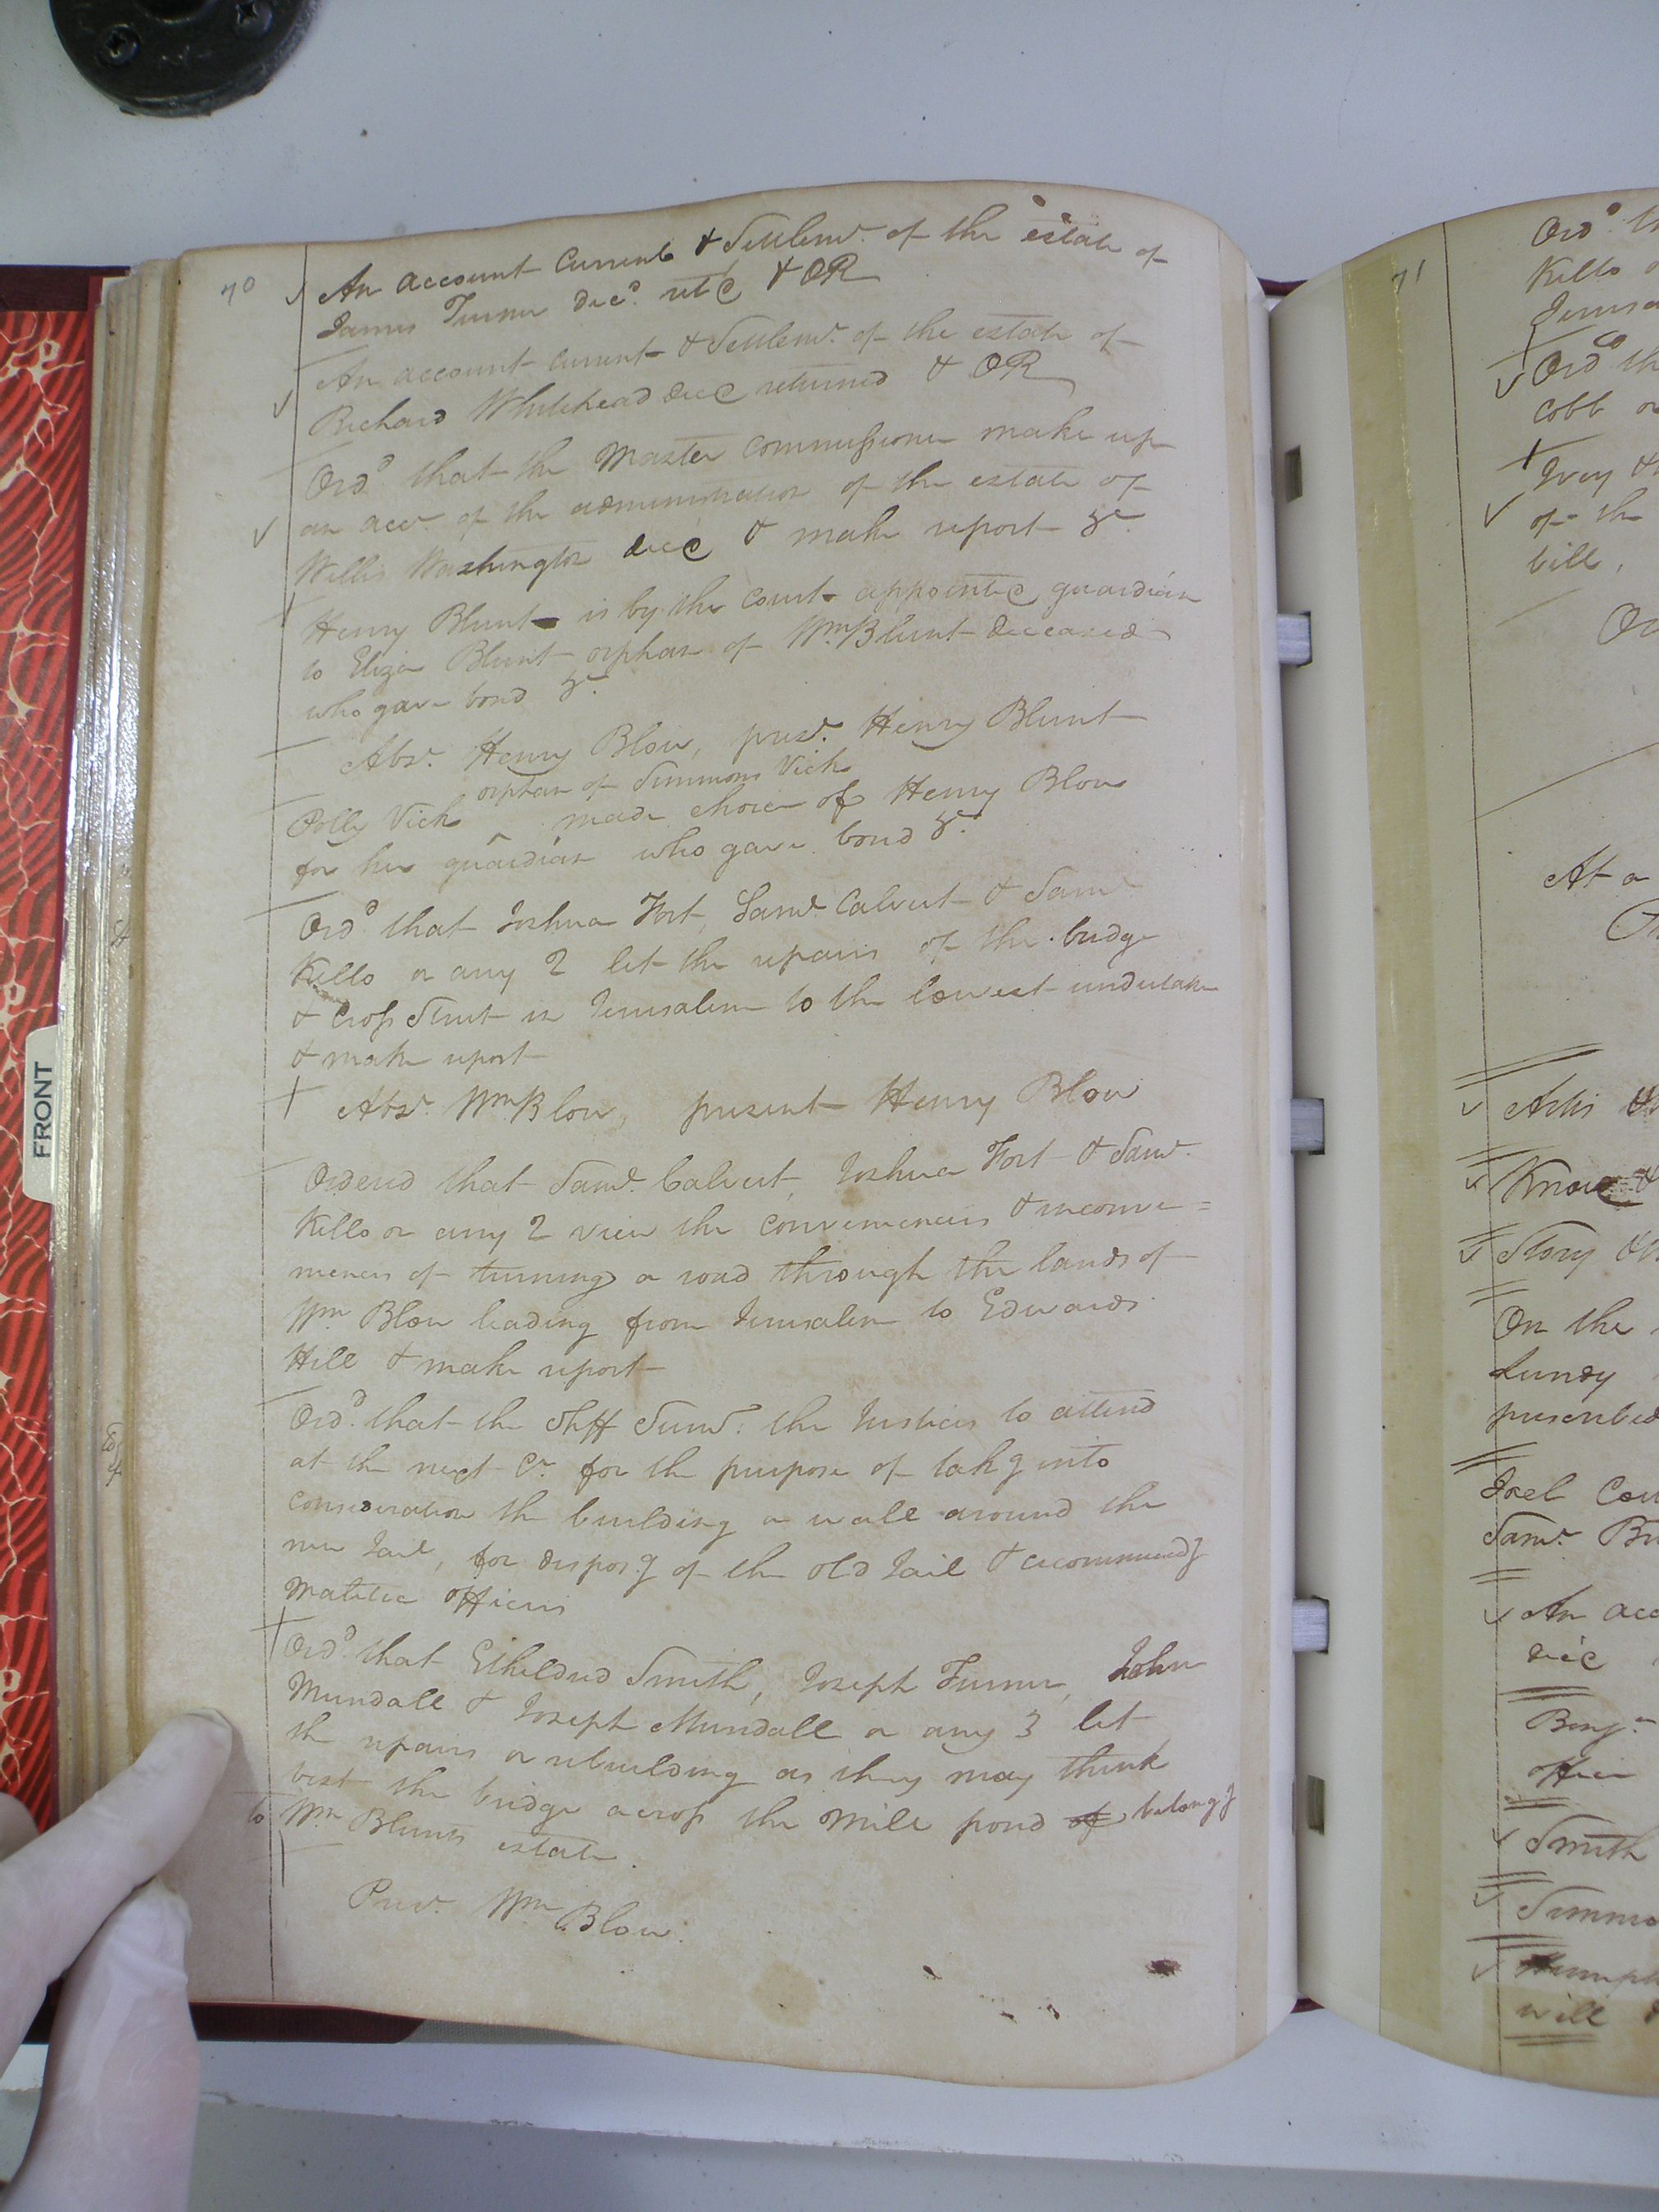 70
An account Current & Settlemt. of the estate of
James Turner Decd. retd & OR
An account current & Settlemt. of the estate of
Richard Whitehead decd returned & OR
Ordd. that the Master Commissioner make up
an acct. of the administration of the estate of
Willis Washington decd & make report &c.
Henry Blunt is by the Court appointed guardian
to Eliza Blunt orphan of Wm. Blunt deceased
who gave bond &c.
Abst. Henry Blow, prest. Henry Blunt
orphan of Simmons Vick
Polly Vick ^ made choice of Henry Blow
for her guardian who gave bond &c.
Ordd. that Joshua Fort, Saml. Calvert & Saml.
Kello or any 2 let the repairs of the bridge
& Cross Street in Jerusalem to the lowest undertaker
& make report
Abst. Wm. Blow, present Henry Blow
Ordered that Saml. Calvert, Joshua Fort & Saml.
Kello or any 2 view the conveniences & inconve=
niences of turning a road through the lands of
Wm. Blow leading from Jerusalem to Edwards
Hill & make report
Ordd. that the Shff Sumd. the Justices to attend
at the next Ct. for the purpose of takg into
consideration the building a wall around the
new Jail, for disposg of the old Jail & recommendg
Malitia officers
Ordd. that Etheldred Smith, Joseph Turner, John
Mundall & Joseph Mundall or any 3 let
the repairs or rebuilding as they may think
best the bridge across the Mill pond of belongg
to Wm. Blunts estate.
Prest. Wm. Blow.
71
Ordd. th
Kello
Jerusa
Ordd th
Cobb or
Ivey &
of the
bill,
Or
At a
Artis &
Know &
Story &
On the
Lundy
presented
Joel Cou
Saml. Br
An acc
decd
Benj.
offic
Smith
Simmo
Humph
will
FRONT